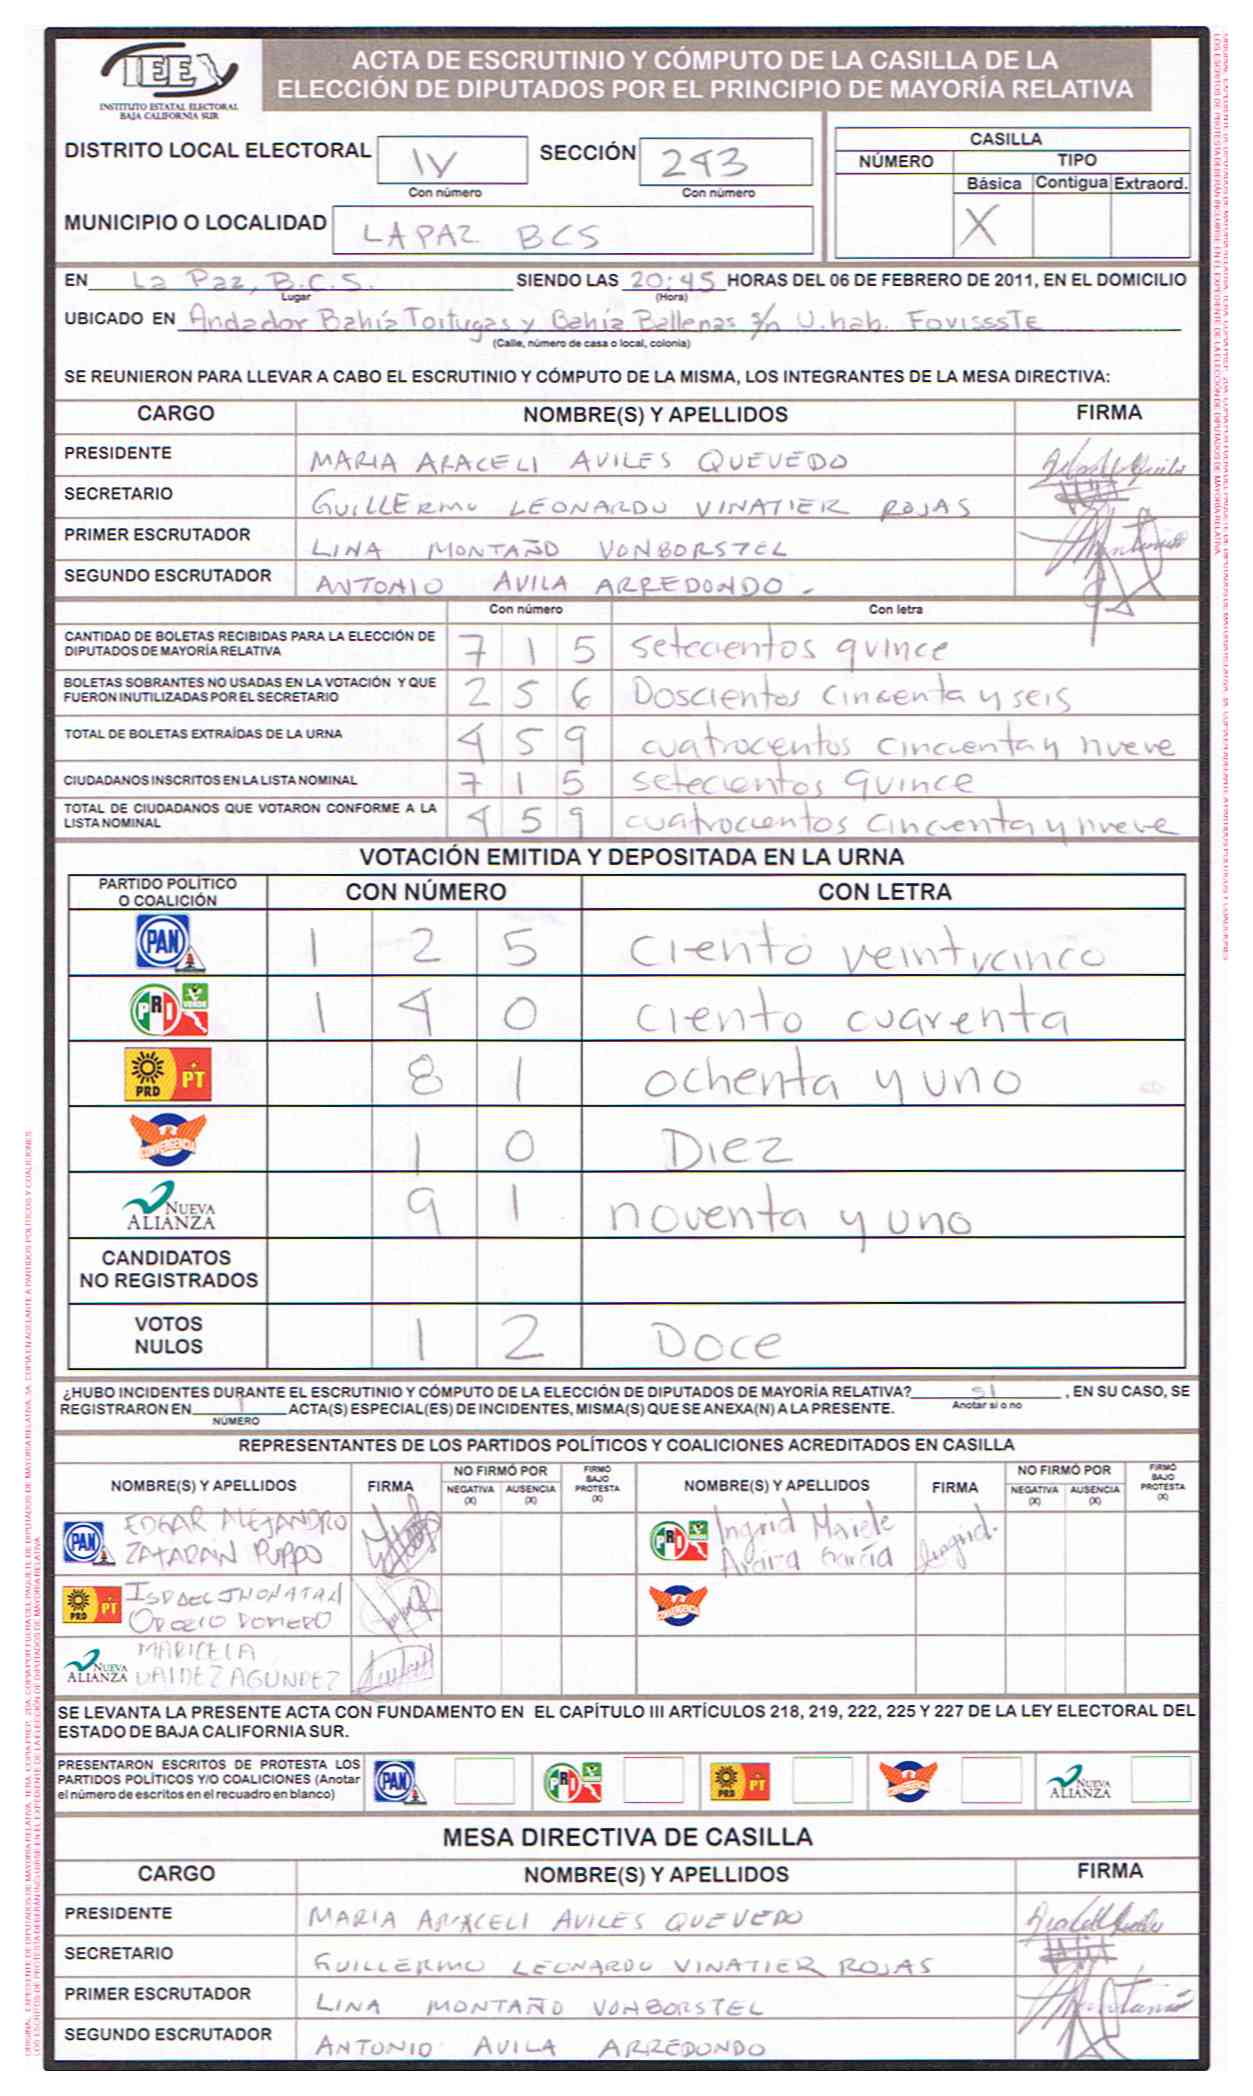 IEE
INSTITUTO ESTATAL ELECTORAL
BAJA CALIFORNIA SUR
ACTA DE ESCRUTINIO Y CÓMPUTO DE LA CASILLA DE LA
ELECCIÓN DE DIPUTADOS POR EL PRINCIPIO DE MAYORÍA RELATIVA
DISTRITO LOCAL ELECTORAL IV SECCIÓN 243
Con número Con número
CASILLA
NÚMERO TIPO
Básica Contigua Extraord.
X
MUNICIPIO O LOCALIDAD LA PAZ BCS
EN La Paz, B.C.S. SIENDO LAS 20:45 HORAS DEL 06 DE FEBRERO DE 2011, EN EL DOMICILIO
Lugar (Hora)
UBICADO EN Andador Bahía Tortugas y Bahía Ballenas s/n U.hab. FOVISSSTE
(Calle, número de casa o local, colonia)
SE REUNIERON PARA LLEVAR A CABO EL ESCRUTINIO Y CÓMPUTO DE LA MISMA, LOS INTEGRANTES DE LA MESA DIRECTIVA:
CARGO NOMBRE(S) Y APELLIDOS FIRMA
PRESIDENTE MARIA ARACELI AVILES QUEVEDO
SECRETARIO GUILLERMO LEONARDO VINATIER ROJAS
PRIMER ESCRUTADOR LINA MONTAÑO VONBORSTEL
SEGUNDO ESCRUTADOR ANTONIO AVILA ARREDONDO.
Con número Con letra
CANTIDAD DE BOLETAS RECIBIDAS PARA LA ELECCIÓN DE
DIPUTADOS DE MAYORÍA RELATIVA 7 1 5 setecientos quince
BOLETAS SOBRANTES NO USADAS EN LA VOTACIÓN Y QUE
FUERON INUTILIZADAS POR EL SECRETARIO 2 5 6 Doscientos cincuenta y seis
TOTAL DE BOLETAS EXTRAÍDAS DE LA URNA 4 5 9 cuatrocentos cincuenta y nueve
CIUDADANOS INSCRITOS EN LA LISTA NOMINAL 7 1 5 setecientos quince
TOTAL DE CIUDADANOS QUE VOTARON CONFORME A LA
LISTA NOMINAL 4 5 9 cuatrocientos cincuenta y nueve
VOTACIÓN EMITIDA Y DEPOSITADA EN LA URNA
PARTIDO POLÍTICO
O COALICIÓN CON NÚMERO CON LETRA
PAN 1 2 5 ciento veintycinco
PRI VERDE 1 4 0 ciento cuarenta
PRD PT 8 1 ochenta y uno
CONVERGENCIA 1 0 Diez
NUEVA
ALIANZA 9 1 noventa y uno
CANDIDATOS
NO REGISTRADOS
VOTOS
NULOS 1 2 Doce
¿HUBO INCIDENTES DURANTE EL ESCRUTINIO Y CÓMPUTO DE LA ELECCIÓN DE DIPUTADOS DE MAYORÍA RELATIVA? si , EN SU CASO, SE
Anotar si o no
REGISTRARON EN 1 ACTA(S) ESPECIAL(ES) DE INCIDENTES, MISMA(S) QUE SE ANEXA(N) A LA PRESENTE.
NÚMERO
REPRESENTANTES DE LOS PARTIDOS POLÍTICOS Y COALICIONES ACREDITADOS EN CASILLA
NOMBRE(S) Y APELLIDOS FIRMA NO FIRMÓ POR NEGATIVA (X) AUSENCIA (X) FIRMÓ BAJO PROTESTA (X) NOMBRE(S) Y APELLIDOS FIRMA NO FIRMÓ POR NEGATIVA (X) AUSENCIA (X) FIRMÓ BAJO PROTESTA (X)
PAN EDGAR ALEJANDRO
ZATARAIN PUPPO
PRI VERDE Ingrid
García Ingrid.
PRD PT ISRAEL JHONATAN
OROZCO ROMERO
CONVERGENCIA
NUEVA
ALIANZA MARICELA
VALDEZ AGUNDEZ
SE LEVANTA LA PRESENTE ACTA CON FUNDAMENTO EN EL CAPÍTULO III ARTÍCULOS 218, 219, 222, 225 Y 227 DE LA LEY ELECTORAL DEL
ESTADO DE BAJA CALIFORNIA SUR.
PRESENTARON ESCRITOS DE PROTESTA LOS
PARTIDOS POLÍTICOS Y/O COALICIONES (Anotar
el número de escritos en el recuadro en blanco)
PAN PRI PRD PT CONVERGENCIA NUEVA ALIANZA
MESA DIRECTIVA DE CASILLA
CARGO NOMBRE(S) Y APELLIDOS FIRMA
PRESIDENTE MARIA ARACELI AVILES QUEVEDO
SECRETARIO GUILLERMO LEONARDO VINATIER ROJAS
PRIMER ESCRUTADOR LINA MONTAÑO VONBORSTEL
SEGUNDO ESCRUTADOR ANTONIO AVILA ARREDONDO